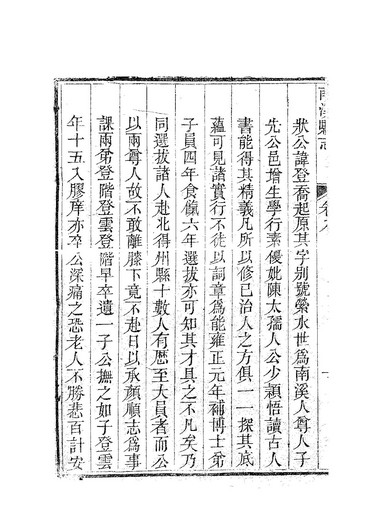 南溪縣志
卷八
狀公諱登喬起原其字别號縈水世爲南溪人尊人子
先公邑增生學行素優妣陳太孺人公少穎悟讀古人
書能得其精義凡所以修已治人之方俱一一探其底
蘊可見諸實行不徒以詞章爲能雍正元年補博士弟
子員四年食餼六年選拔亦可知其才具之不凡矣乃
同選拔諸人赴北得州縣十數人有歷至大員者而公
以兩尊人故不敢離膝下竟不赴日以承顔順志爲事
課兩弟登階登雲登階早卒遺一子公撫之如子登雲
年十五入膠庠亦卒公深痛之恐老人不勝悲百計安